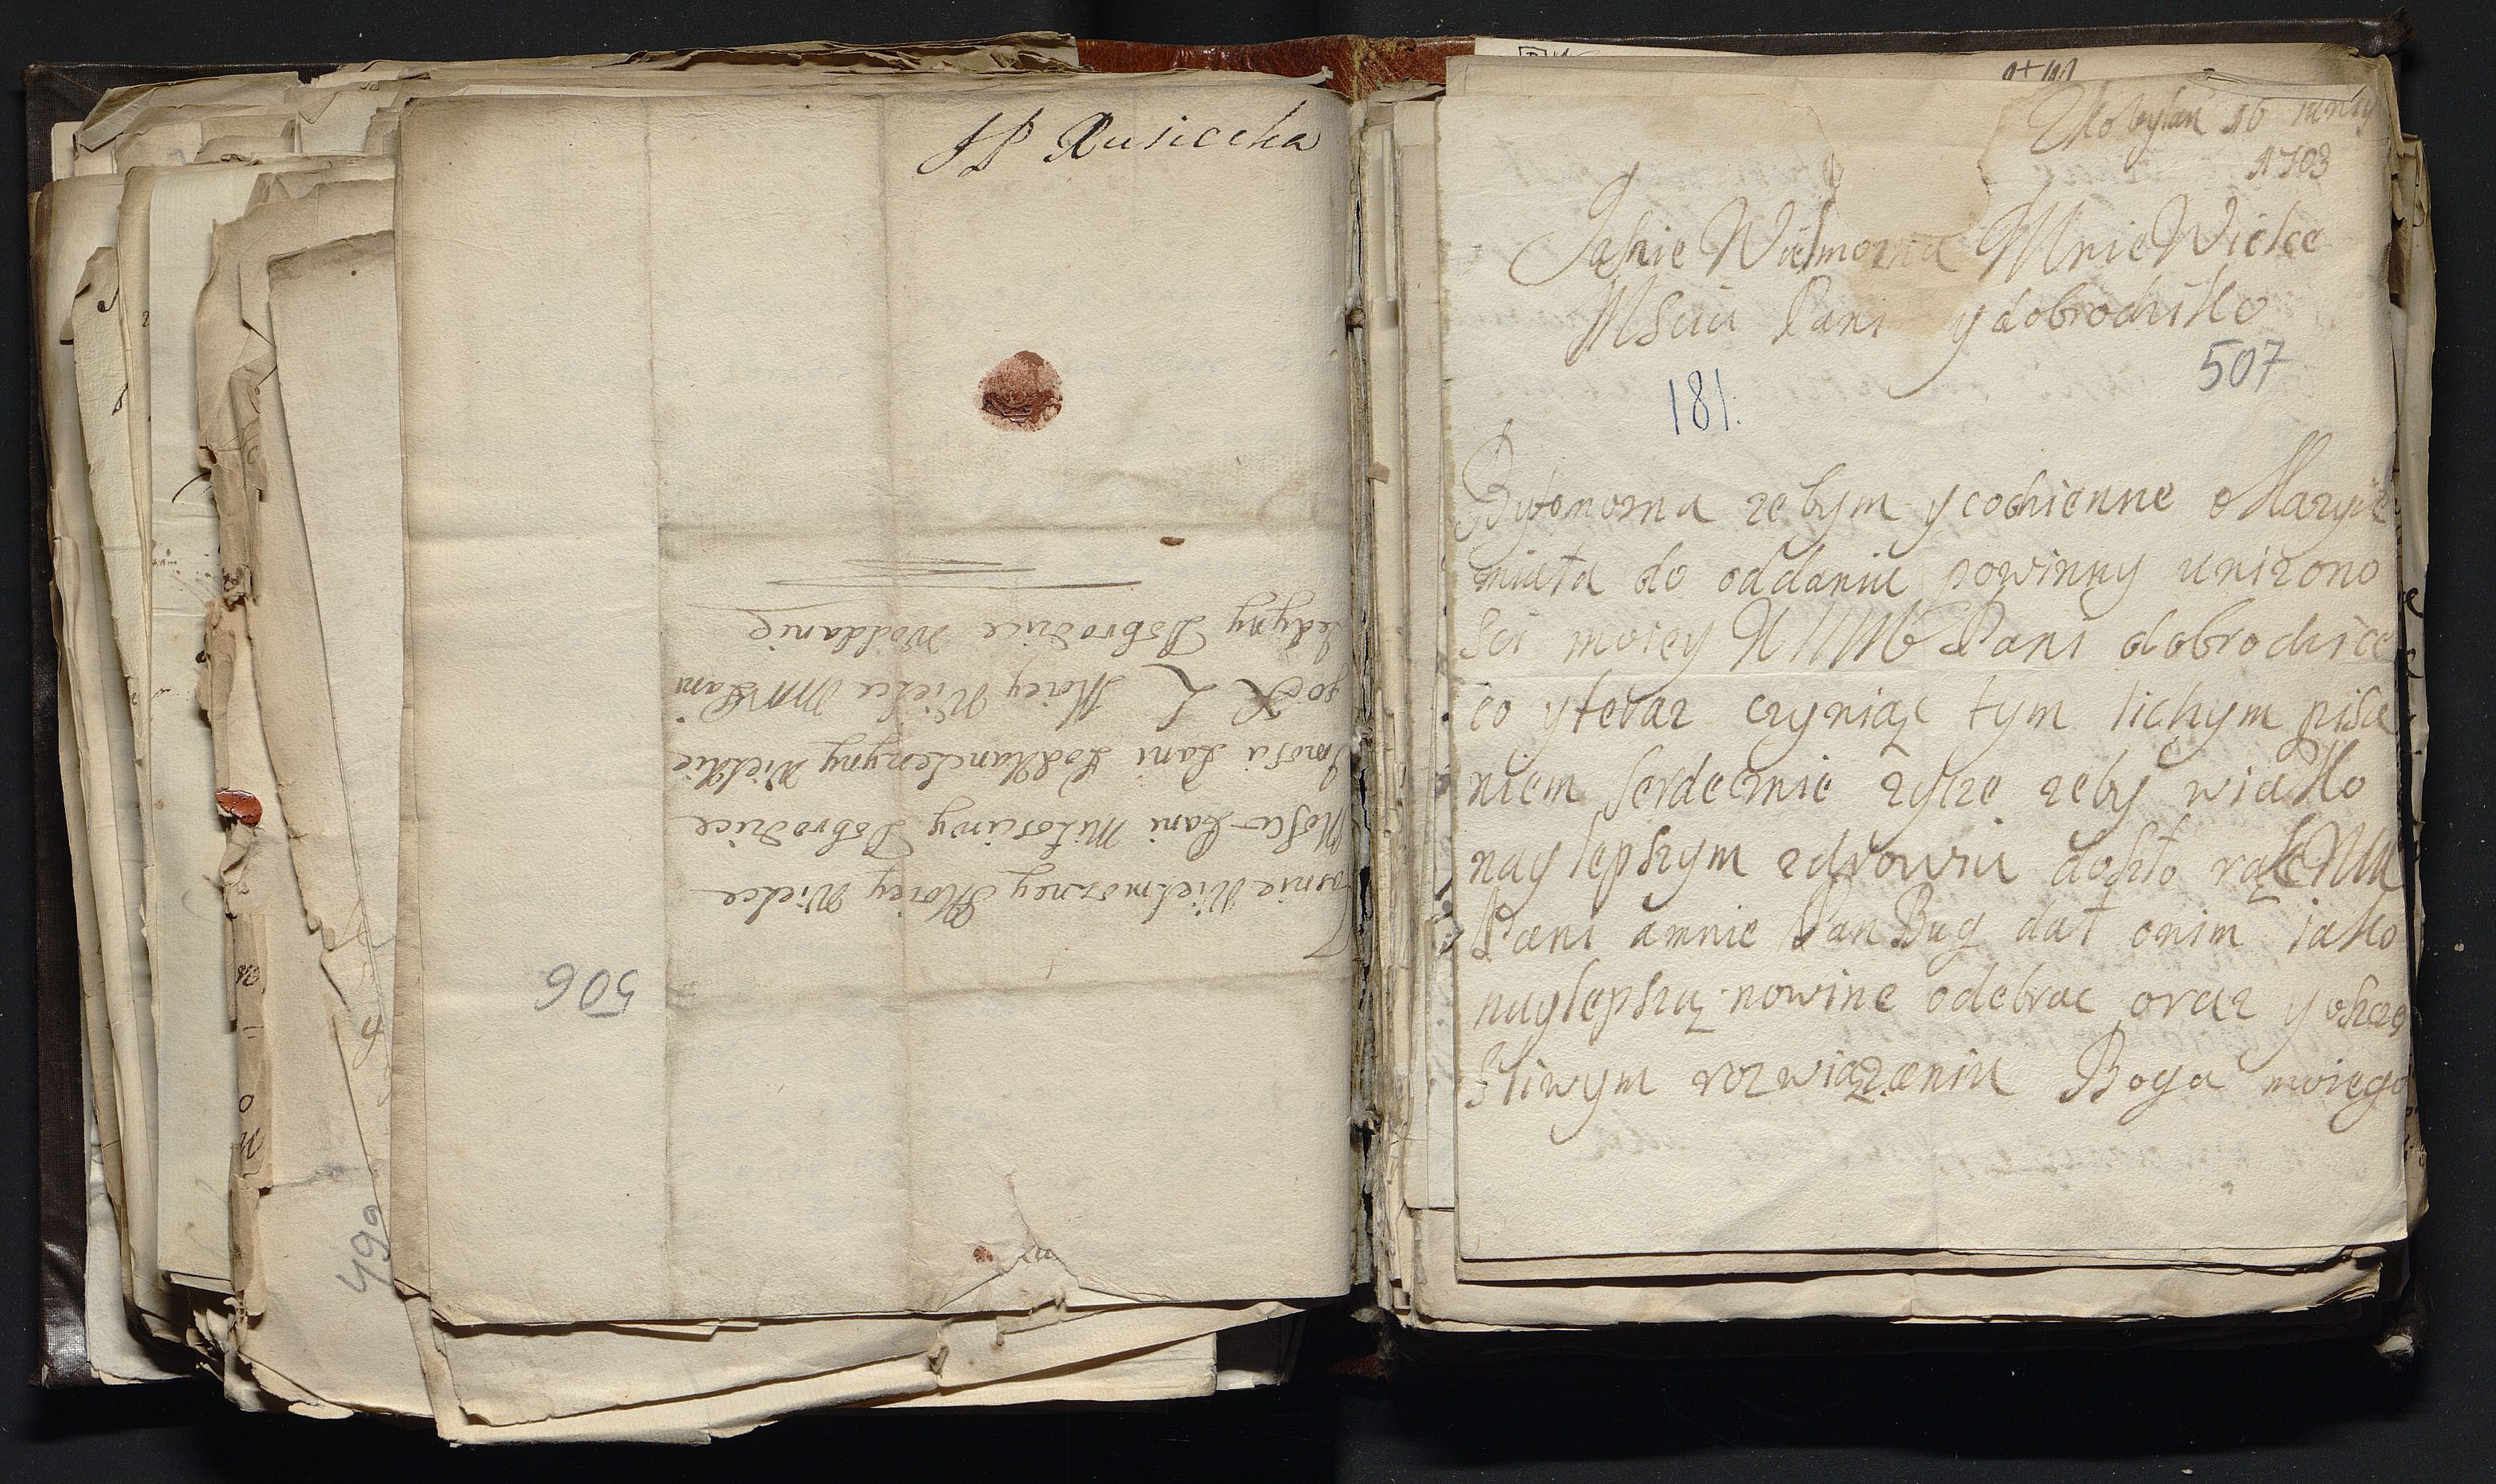 JP Rusiecka
Jasnie Wielmozney Moiey Wielce
Mosci Pani Miłosciwy Dobrodzice
Jmosci Pani Podkanclerzyny Wielkie
go X L Moiey Wielce MM Pani
Jedyny Dobrodzice woddanie
506
499
Zkobylan 16 january
1703
Jasnie Wielmozna Mnie Wielce
MSciu Pani y dobrodziko
507
181.
zebym ycodzienne okazyie
miała do oddaniu powinny unizono
sci moiey WMM Pani dobrodzice
co yteraz czyniąc tym lichym pisa
niem serdecznie zycze zeby wiako
naylepszym zdrowiu doszło rąk
Pani amnie Pan Bug dał onim iako
naylepszą nowine odebrac oraz y oszczę
sliwym rozwiązaniu Boga moiego